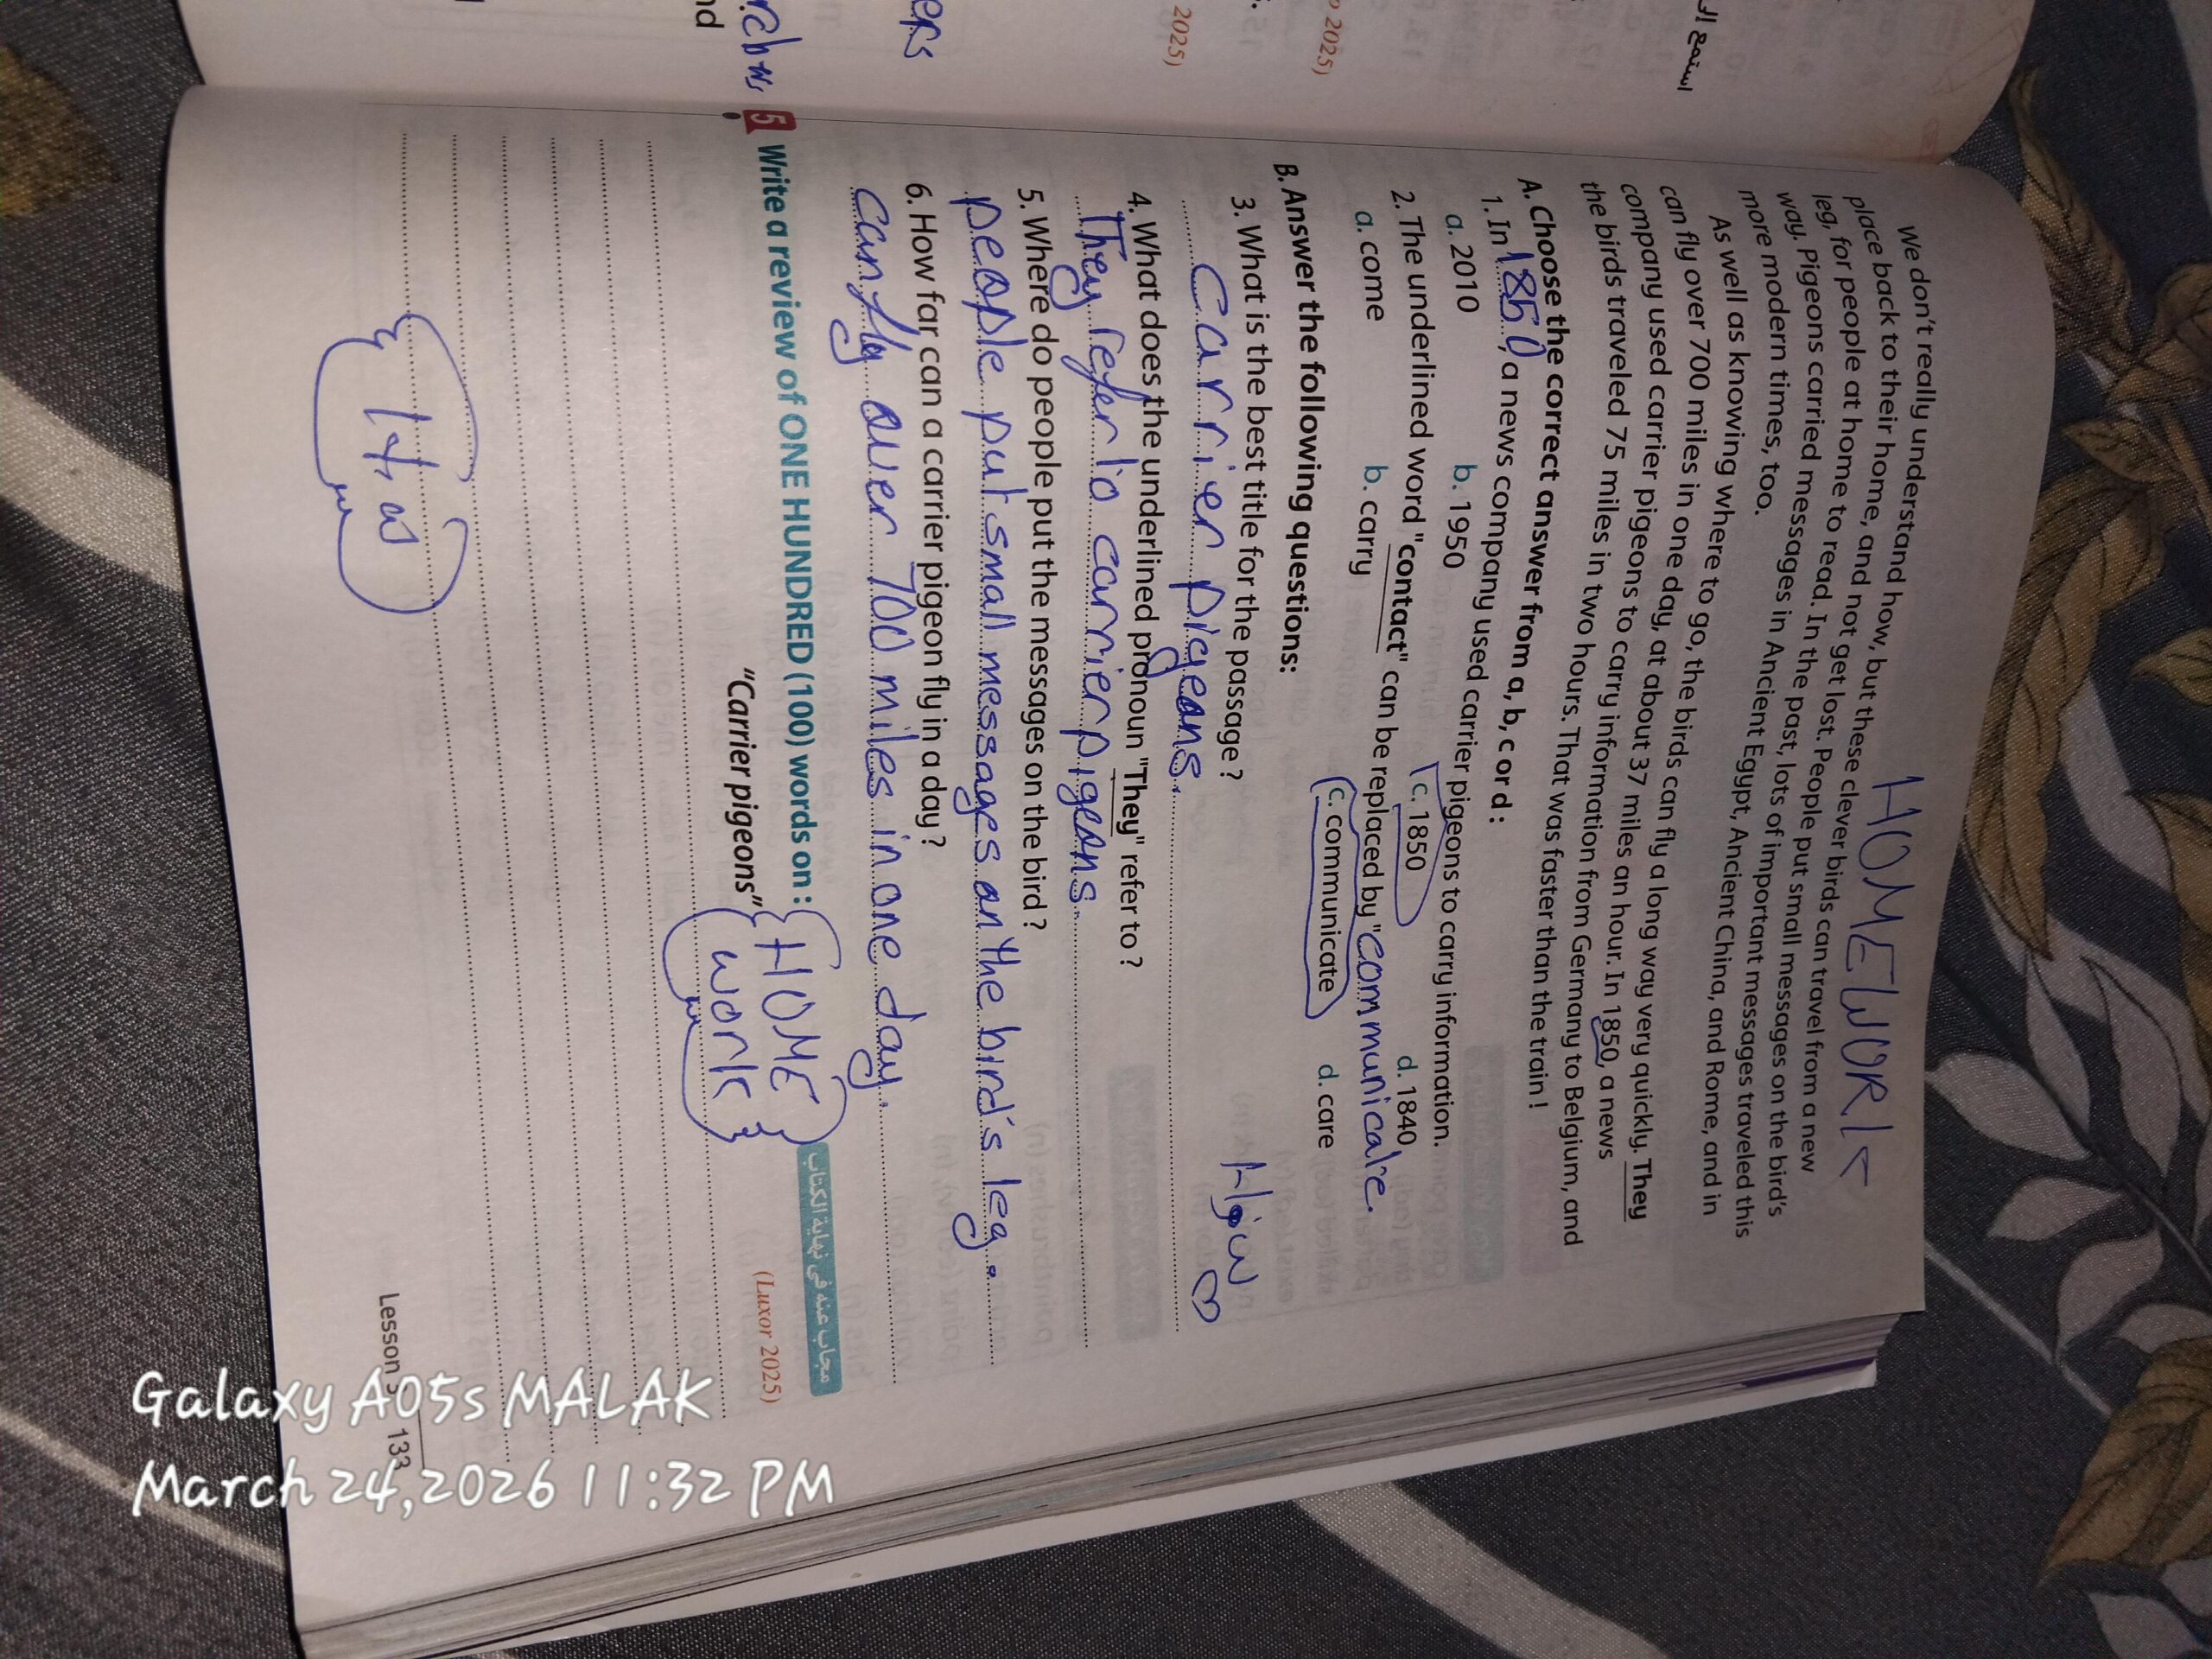 HOMEWORK
We don't really understand how, but these clever birds can travel from a new
place back to their home, and not get lost. People put small messages on the bird's
leg, for people at home to read. In the past, lots of important messages traveled this
way. Pigeons carried messages in Ancient Egypt, Ancient China, and Rome, and in
more modern times, too.
As well as knowing where to go, the birds can fly a long way very quickly. They
can fly over 700 miles in one day, at about 37 miles an hour. In 1850, a news
company used carrier pigeons to carry information from Germany to Belgium, and
the birds traveled 75 miles in two hours. That was faster than the train!
A. Choose the correct answer from a, b, c or d :
1. In 1850, a news company used carrier pigeons to carry information.
a. 2010 b. 1950 c. 1850 d. 1840
2. The underlined word "contact" can be replaced by "communicate.
a. come b. carry c. communicate d. care
B. Answer the following questions:
3. What is the best title for the passage?
Carrier pigeons.
4. What does the underlined pronoun "They" refer to ?
They refer to carrier pigeons.
5. Where do people put the messages on the bird ?
people put small messages on the bird's leg.
6. How far can a carrier pigeon fly in a day ?
can fly over 700 miles in one day.
5 Write a review of ONE HUNDRED (100) words on :
مجاب عنه في نهاية الكتاب
"Carrier pigeons"
(Luxor 2025)
HOME
work
Lesson 3 133
استمع
2025)
2025)
ers
nd
Galaxy A05s MALAK
March 24,2026 11:32 PM